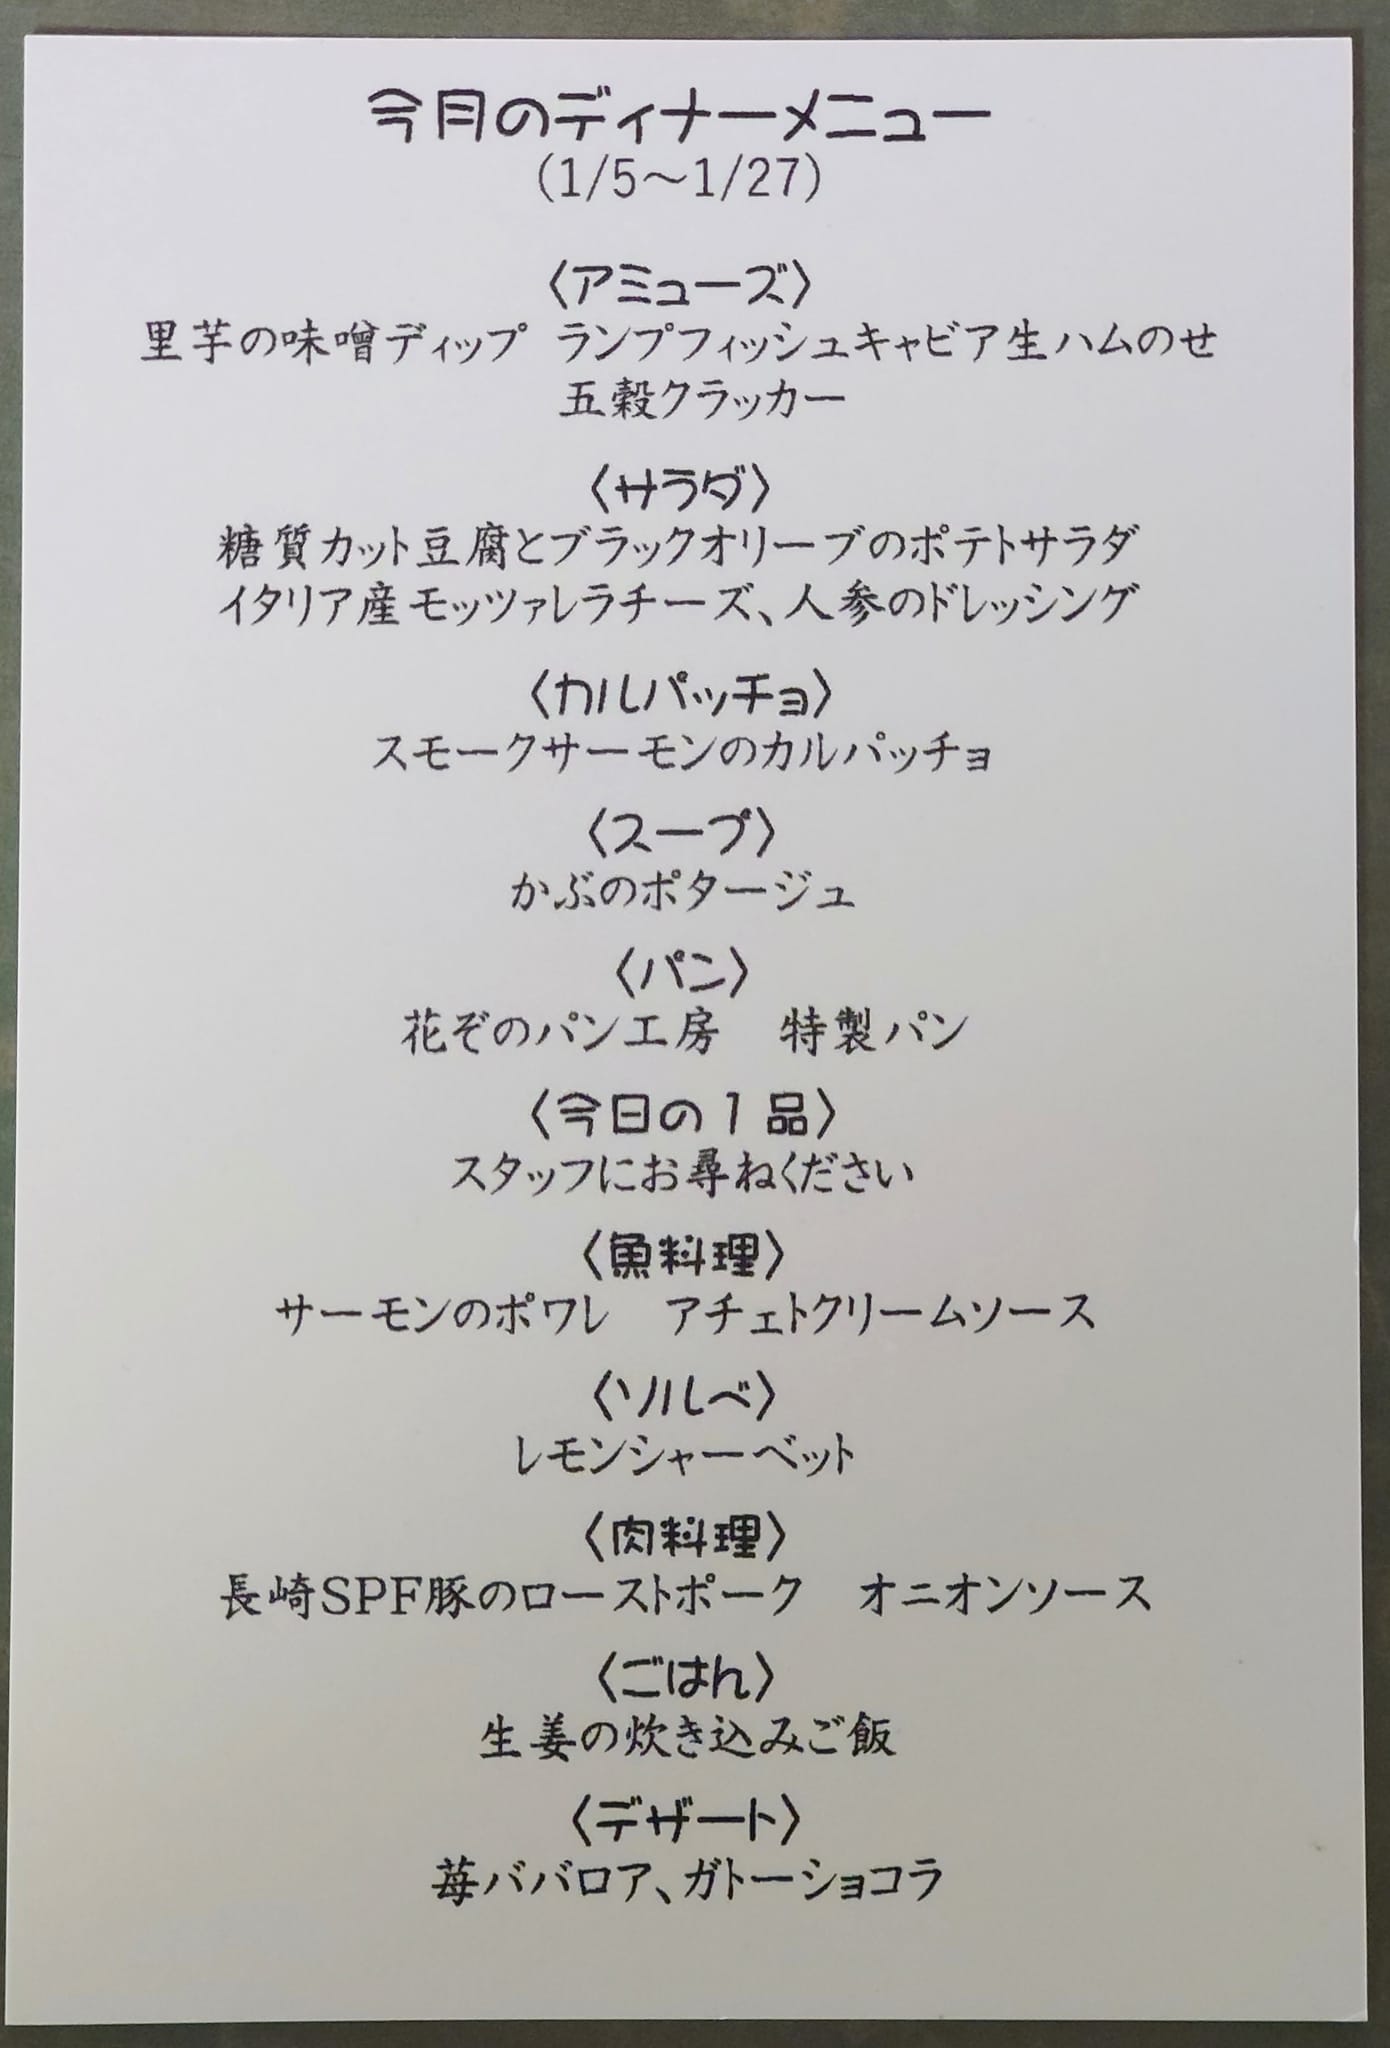 今月のディナーメニュー
(1/5～1/27)
〈アミューズ〉
里芋の味噌ディップ ランプフィッシュキャビア生ハムのせ
五穀クラッカー
〈サラダ〉
糖質カット豆腐とブラックオリーブのポテトサラダ
イタリア産モッツァレラチーズ、人参のドレッシング
〈カルパッチョ〉
スモークサーモンのカルパッチョ
〈スープ〉
かぶのポタージュ
〈パン〉
花ぞのパン工房　特製パン
〈今日の1品〉
スタッフにお尋ねください
〈魚料理〉
サーモンのポワレ　アチェトクリームソース
〈ソルベ〉
レモンシャーベット
〈肉料理〉
長崎SPF豚のローストポーク　オニオンソース
〈ごはん〉
生姜の炊き込みご飯
〈デザート〉
苺ババロア、ガトーショコラ